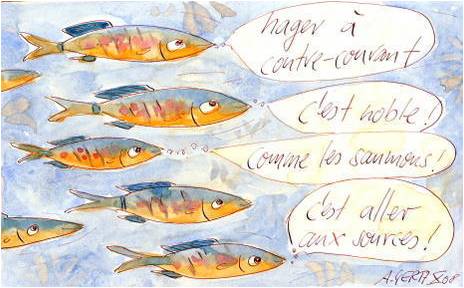 nager à
contre-courant
c'est noble!
comme les saumons!
c'est aller
aux sources!